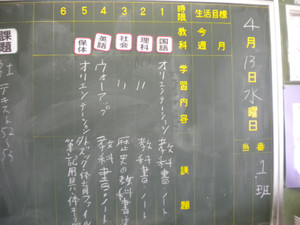 4月13日水曜日
当番
1班
生活目標
今週
月
時限
教科
学習内容
課題
1
国語
オリエンテーション
教科書 ノート
2
理科
〃
教科書 ノート
3
社会
〃
歴史の教科書
4
英語
ウォームアップ
教科書 ノート
5
保体
オリエンテーション
体育ファイル
筆記用具
6
課題
社
テキスト52〜55